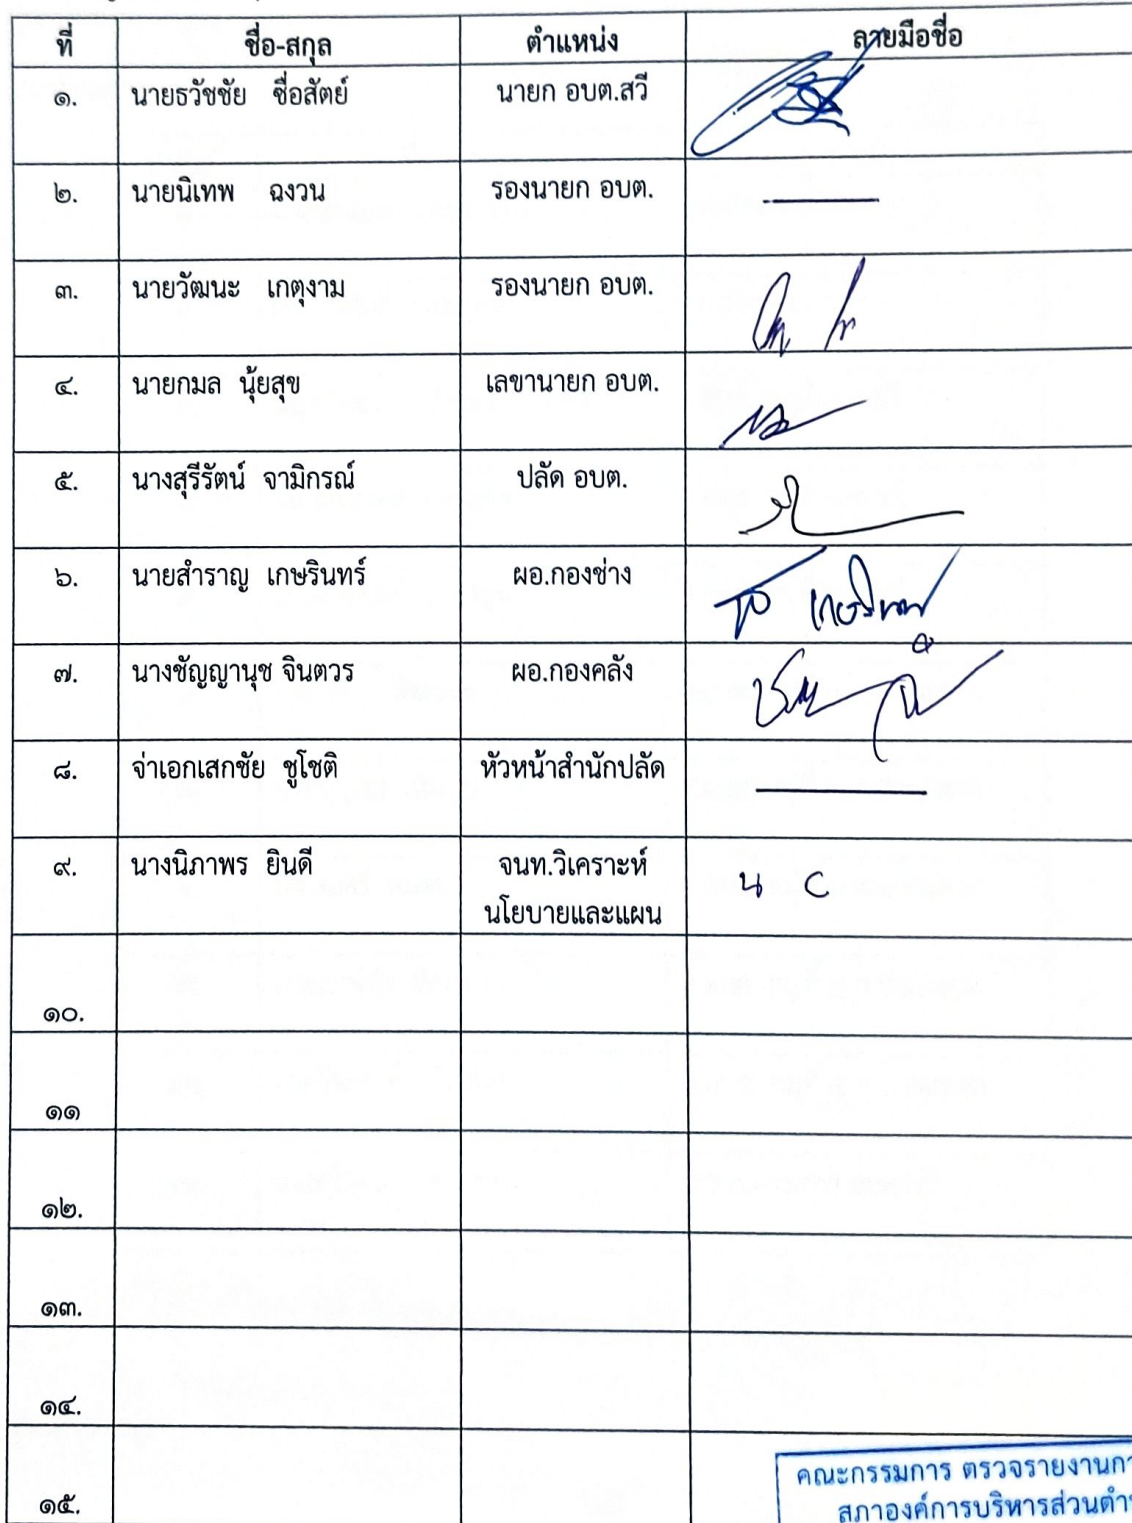 ที่ ชื่อ-สกุล ตำแหน่ง ลายมือชื่อ
๑. นายธวัชชัย ซื่อสัตย์ นายก อบต.สวี
๒. นายนิเทพ ฉงวน รองนายก อบต.
๓. นายวัฒนะ เกตุงาม รองนายก อบต.
๔. นายกมล นุ้ยสุข เลขานายก อบต.
๕. นางสุรีรัตน์ จามิกรณ์ ปลัด อบต.
๖. นายสำราญ เกษรินทร์ ผอ.กองช่าง
๗. นางชัญญานุช จินตวร ผอ.กองคลัง
๘. จ่าเอกเสกชัย ชูโชติ หัวหน้าสำนักปลัด
๙. นางนิภาพร ยินดี จนท.วิเคราะห์
นโยบายและแผน
๑๐.
๑๑
๑๒.
๑๓.
๑๔.
๑๕.
คณะกรรมการ ตรวจรายงานกา
สภาองค์การบริหารส่วนตำบ